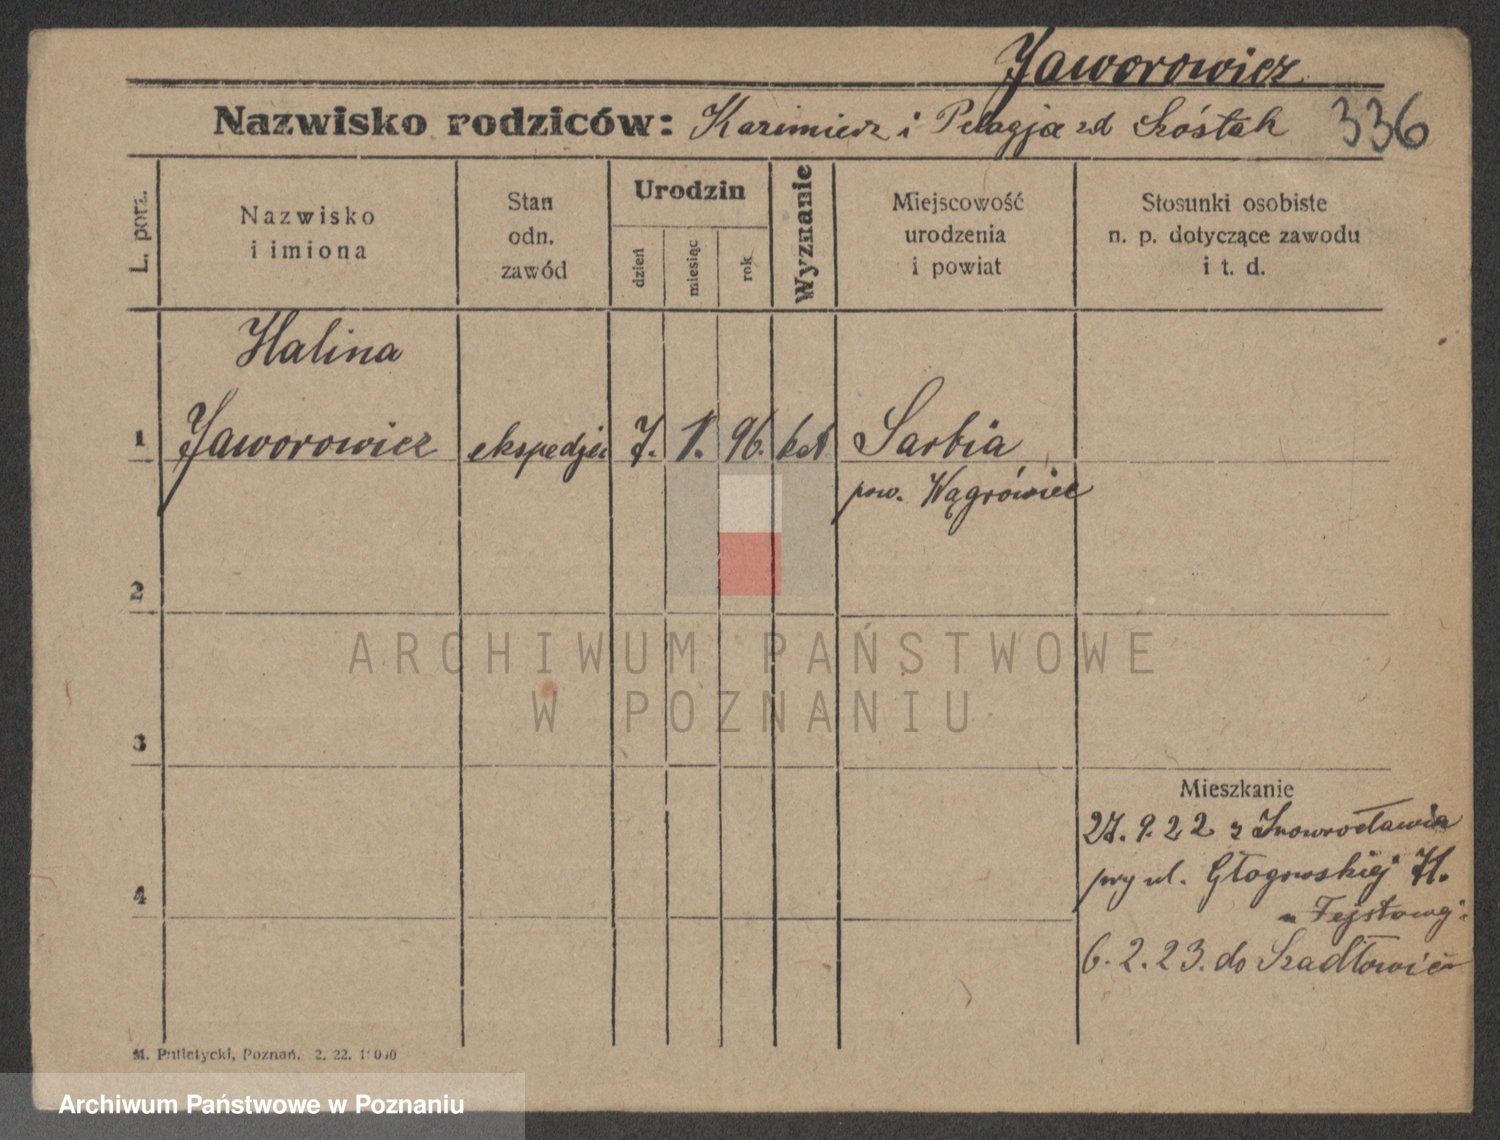 Jaworowicz
Nazwisko rodziców: Kazimierz i Pelagja zd Szóstak 336
L. porz.
Nazwisko
i imiona
Stan
odn.
zawód
Urodzin
dzień
miesiąc
rok
Wyznanie
Miejscowość
urodzenia
i powiat
Stosunki osobiste
n. p. dotyczące zawodu
i t. d.
Halina
1 Jaworowicz ekspedje 7. 1. 96. kat Sarbia
pow. Wągrówiec
2
ARCHIWUM PAŃSTWOWE
W POZNANIU
3
Mieszkanie
27. 9. 22 z Inowrocławia
przy ul. Głogowskiej
4
u Fejstowej
6. 2. 23. do Szadłowic
M. Putiatycki, Poznań. 2. 22.
Archiwum Państwowe w Poznaniu